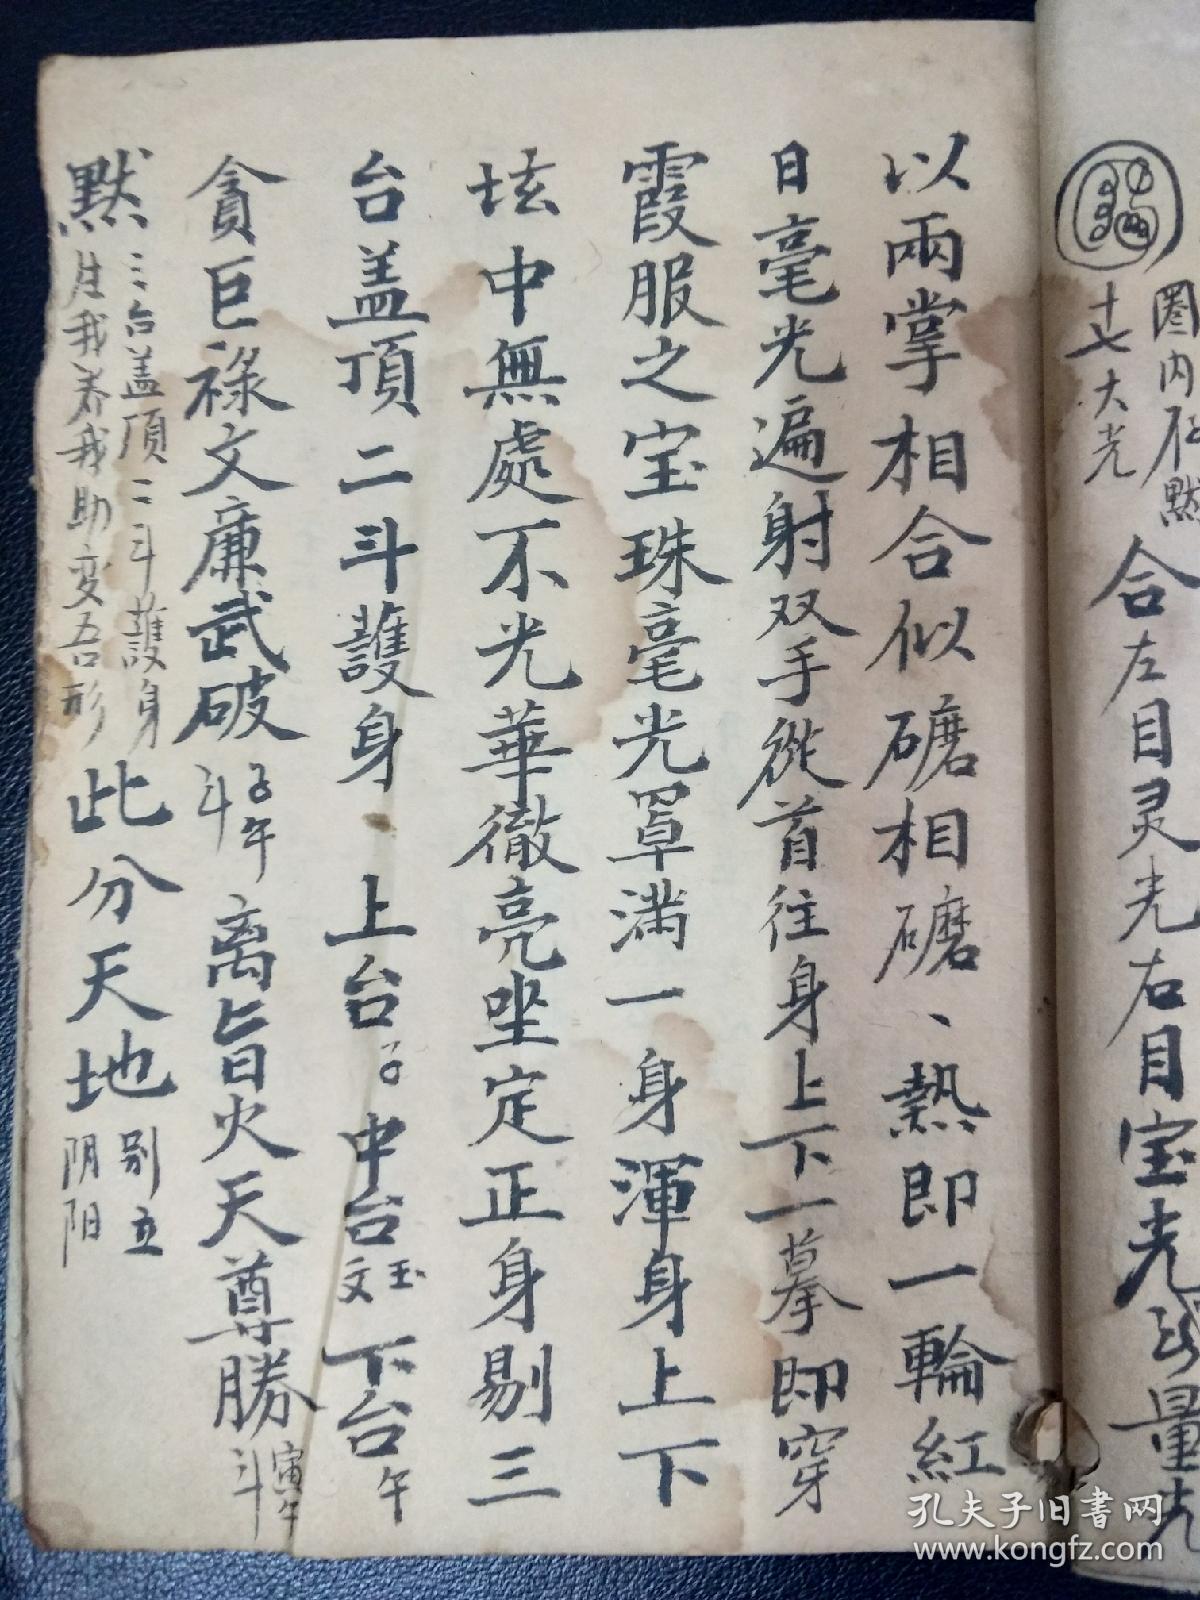 圏内 默
十七大光
合左目灵光右目宝光 量光
以兩掌相合似磿相磿、熱即一輪紅
日毫光遍射双手從首往身上下一摹即穿
霞服之宝珠毫光罩满一身渾身上下
坛中無處不光華徹亮坐定正身剔三
台盖頂二斗護身、上台子中台玉文下台午
貪巨祿文廉武破子午斗离旨火天尊勝寅午斗
默三台盖顶二斗護身生我养我助变吾形此分天地别立阴阳
孔夫子旧书网
www.kongfz.com